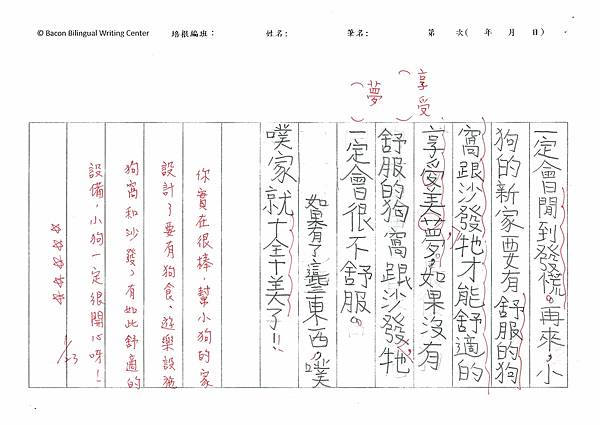 © Bacon Bilingual Writing Center 培根編班： 姓名： 筆名： 第 次( 年 月 日)
一定會閒到發慌。再來，小
狗的新家要有舒服的狗
窩跟沙發牠才能舒適的
享受美夢，如果沒有
享受
夢
舒服的狗窩跟沙發，牠
一定會很不舒服。
如果有了這些東西，噗
噗家就十全十美了!!
你實在很棒，幫小狗的家
設計了要有狗食、遊樂設施
狗窩和沙發，有如此舒適的
設備，小狗一定很開心呀！
☆☆☆☆☆
1/23